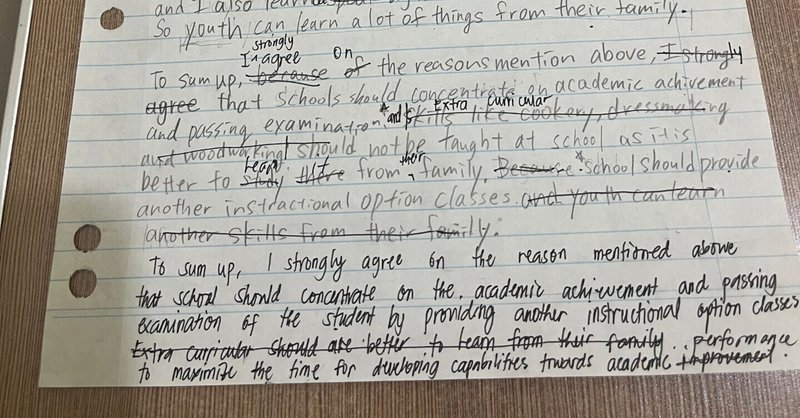 and I also learn
So youth can learn a lot of things from their family.
strongly
I agree on
To sum up, because of the reasons mention above, I strongly
agree that schools should concentrate on academic achivement
Extra curricular
and passing examination and skills like cookery, dressmaking
and woodworking should not be taught at school as it is
learn it their
better to study there from family. Because school should provide
another instractional option classes and youth can learn
another skills from their family.
To sum up, I strongly agree on the reason mentioned above
that school should concentrate on the academic achievement and passing
examination of the student by providing another instructional option classes
Extra curricular should are better to learn from their family. performance
to maximize the time for developing capabilities towards academic improvement.